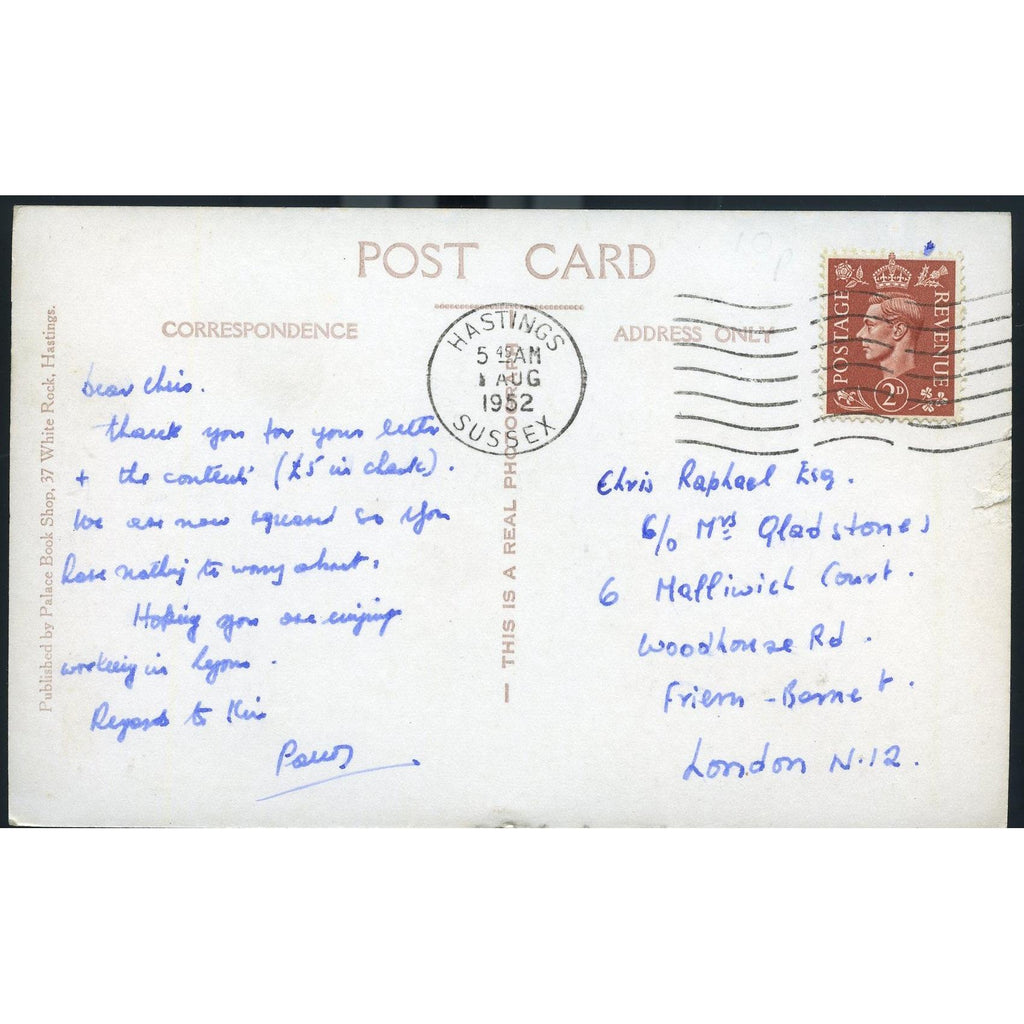 POST CARD
CORRESPONDENCE
ADDRESS ONLY
Published by Palace Book Shop, 37 White Rock, Hastings.
— THIS IS A REAL PHOTOGRAPH
HASTINGS
5 45 AM
1 AUG
1952
SUSSEX
POSTAGE
REVENUE
2D
Dear Chris.
Thank you for your letter
+ the contents (£5 in
We are now squared so you
have nothing to worry about.
Hoping you are enjoying
working in Lyons.
Regards to
Chris Raphael Esq.
c/o Mrs Gladstones
6 Malliwich Court.
Woodhouse Rd.
Friern - Barnet.
London N.12.